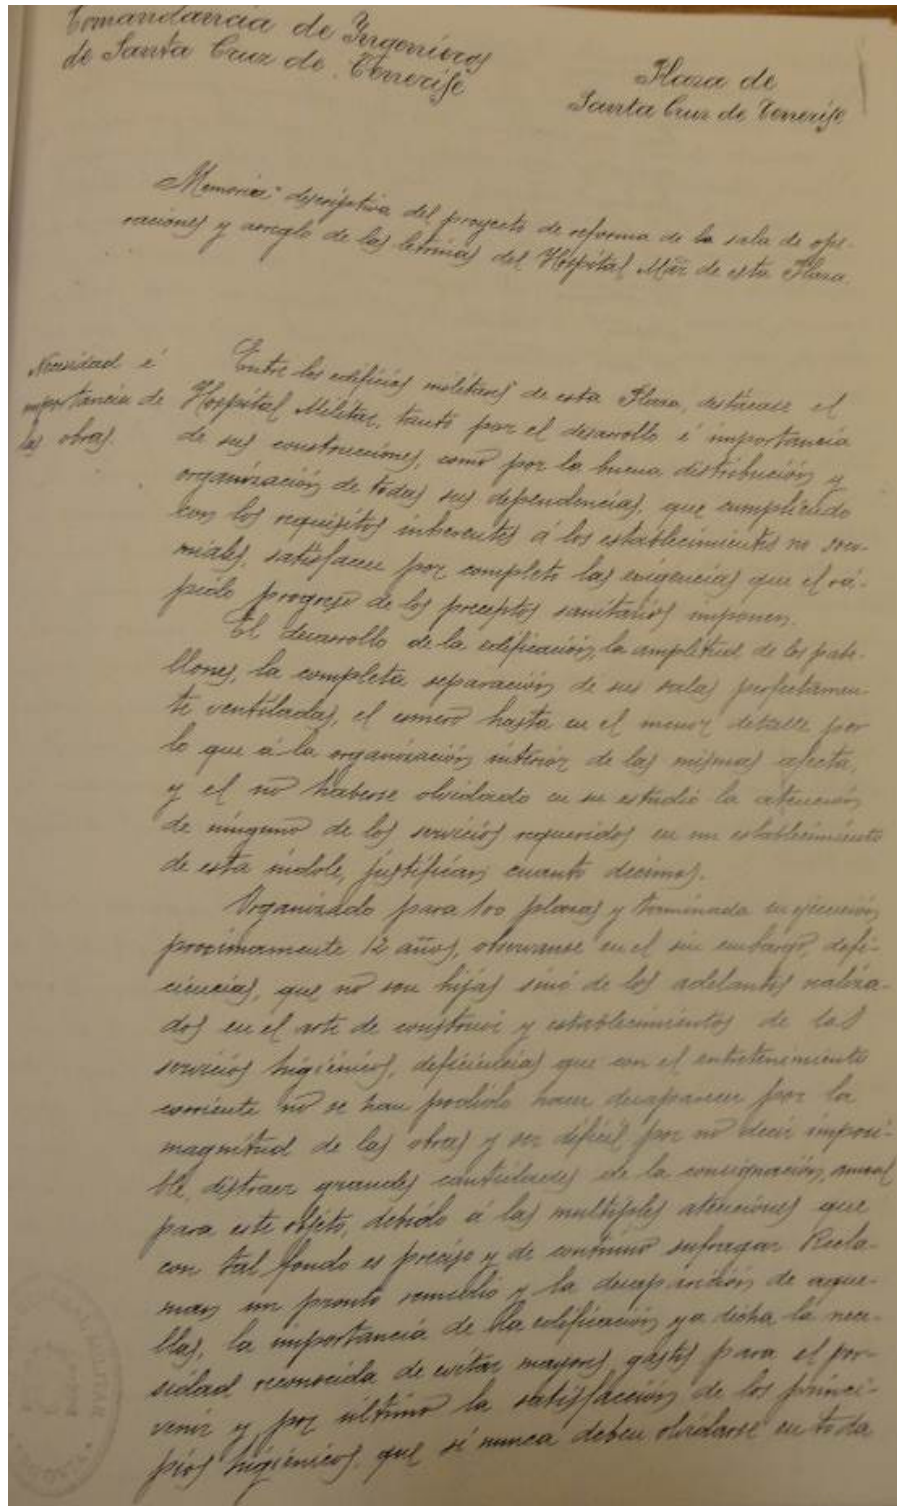 Comandancia de Ingenieros
de Santa Cruz de Tenerife
Plaza de
Santa Cruz de Tenerife
Memoria descriptiva del proyecto de reforma de la sala de ope-
raciones y arreglo de las letrinas del Hospital Mar de esta Plaza.
Necesidad é
importancia de
las obras.
Entre los edificios militares de esta Plaza, destácase el
Hospital Militar, tanto por el desarrollo é importancia
de sus construcciones, como por la buena distribución y
organización de todas sus dependencias, que cumpliendo
con los requisitos inherentes á los establecimientos no soco-
miales, satisfacen por completo las exigencias que el rá-
pido progreso de los preceptos sanitarios imponen.
El desarrollo de la edificación, la amplitud de los pabe-
llones, la completa separación de sus salas perfectamen-
te ventiladas, el esmero hasta en el menor detalle por
lo que á la organización interior de las mismas afecta,
y el no haberse olvidado en su estudio la atención
de ninguno de los servicios requeridos en un establecimiento
de esta indole, justifican cuanto decimos.
Organizado para 100 plazas y terminada su ejecución
proximamente 12 años, observanse en el sin embargo, defi-
ciencias, que no son hijas sinó de los adelantos realiza-
dos en el arte de construir y establecimientos de los
servicios higiénicos, deficiencias que con el entretenimiento
corriente no se han podido hacer desaparecer por la
magnitud de las obras y ser dificil, por no decir imposi-
ble, distraer grandes cantidades de la consignación, anual
para este objeto, debido á las multiples atenciones que
con tal fondo es preciso y de continuo sufragar. Recla-
man un pronto remedio y la desaparición de aque-
llas, la importancia de la edificación ya dicha la nece-
sidad reconocida de evitar mayores gastos para el por-
venir y por ultimo la satisfacción de los princi-
pios higiénicos, que si nunca deben olvidarse en toda